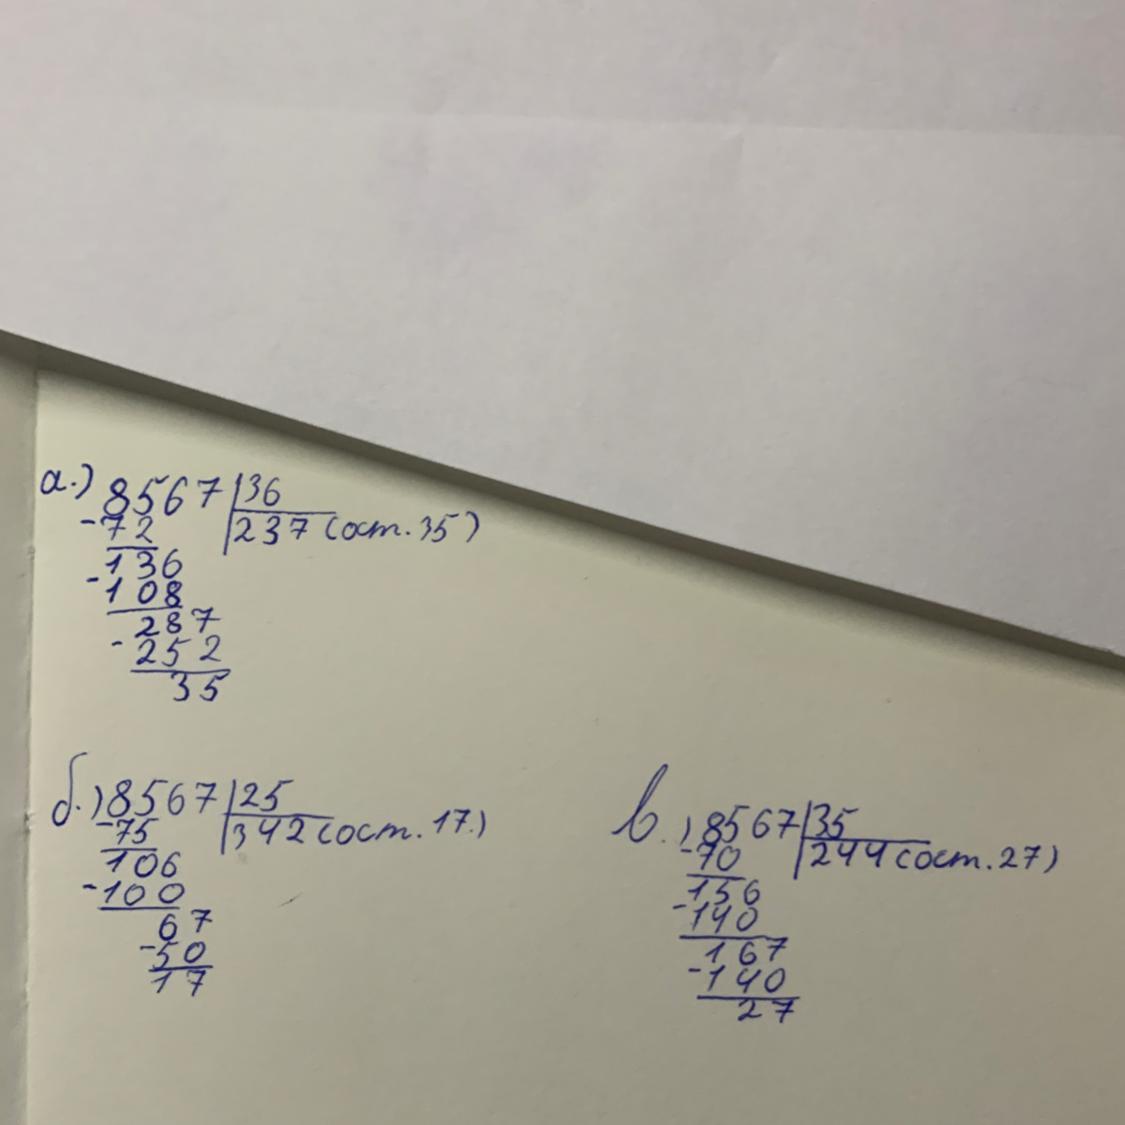 а.) 8567 | 36
- 72 | 237 (ост. 35)
136
- 108
287
- 252
35
б.) 8567 | 25
- 75 | 342 (ост. 17.)
106
- 100
67
- 50
17
в.) 8567 | 35
- 70 | 244 (ост. 27)
156
- 140
167
- 140
27